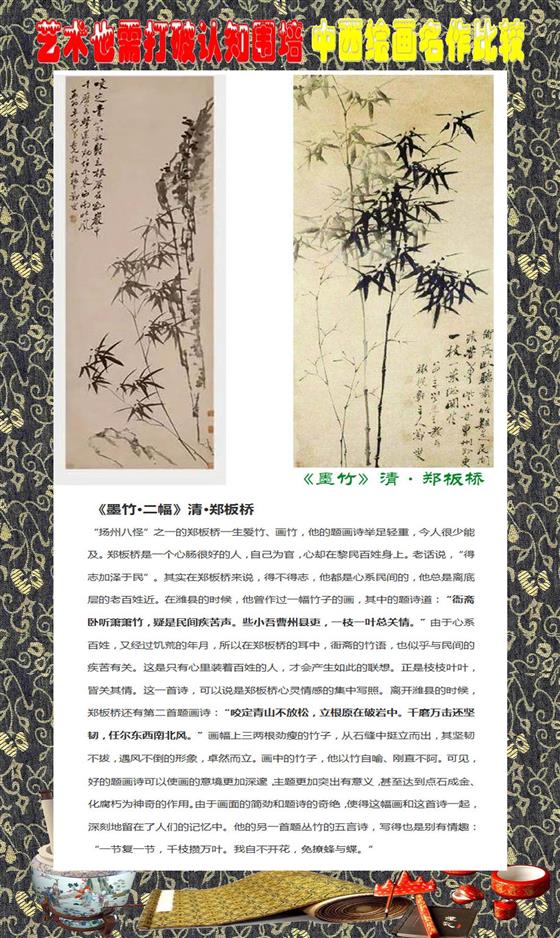 艺术也需打破认知围墙 中西绘画名作比较
《墨竹》清·郑板桥
《墨竹·二幅》清·郑板桥
“扬州八怪”之一的郑板桥一生爱竹、画竹，他的题画诗举足轻重，今人很少能
及。郑板桥是一个心肠很好的人，自己为官，心却在黎民百姓身上。老话说，“得
志加泽于民”。其实在郑板桥来说，得不得志，他都是心系民间的，他总是离底
层的老百姓近。在潍县的时候，他曾作过一幅竹子的画，其中的题诗道：“衙斋
卧听萧萧竹，疑是民间疾苦声。些小吾曹州县吏，一枝一叶总关情。”由于心系
百姓，又经过饥荒的年月，所以在郑板桥的耳中，衙斋的竹语，也似乎与民间的
疾苦有关。这是只有心里装着百姓的人，才会产生如此的联想。正是枝枝叶叶，
皆关其情。这一首诗，可以说是郑板桥心灵情感的集中写照。离开潍县的时候，
郑板桥还有第二首题画诗：“咬定青山不放松，立根原在破岩中。千磨万击还坚
韧，任尔东西南北风。”画幅上三两根劲瘦的竹子，从石缝中挺立而出，其坚韧
不拔，遇风不倒的形象，卓然而立。画中的竹子，他以竹自喻、刚直不阿。可见，
好的题画诗可以使画的意境更加深邃，主题更加突出有意义，甚至达到点石成金、
化腐朽为神奇的作用。由于画面的简劲和题诗的奇绝，使得这幅画和这首诗一起，
深刻地留在了人们的记忆中。他的另一首题丛竹的五言诗，写得也是别有情趣：
“一节复一节，千枝攒万叶。我自不开花，免撩蜂与蝶。”